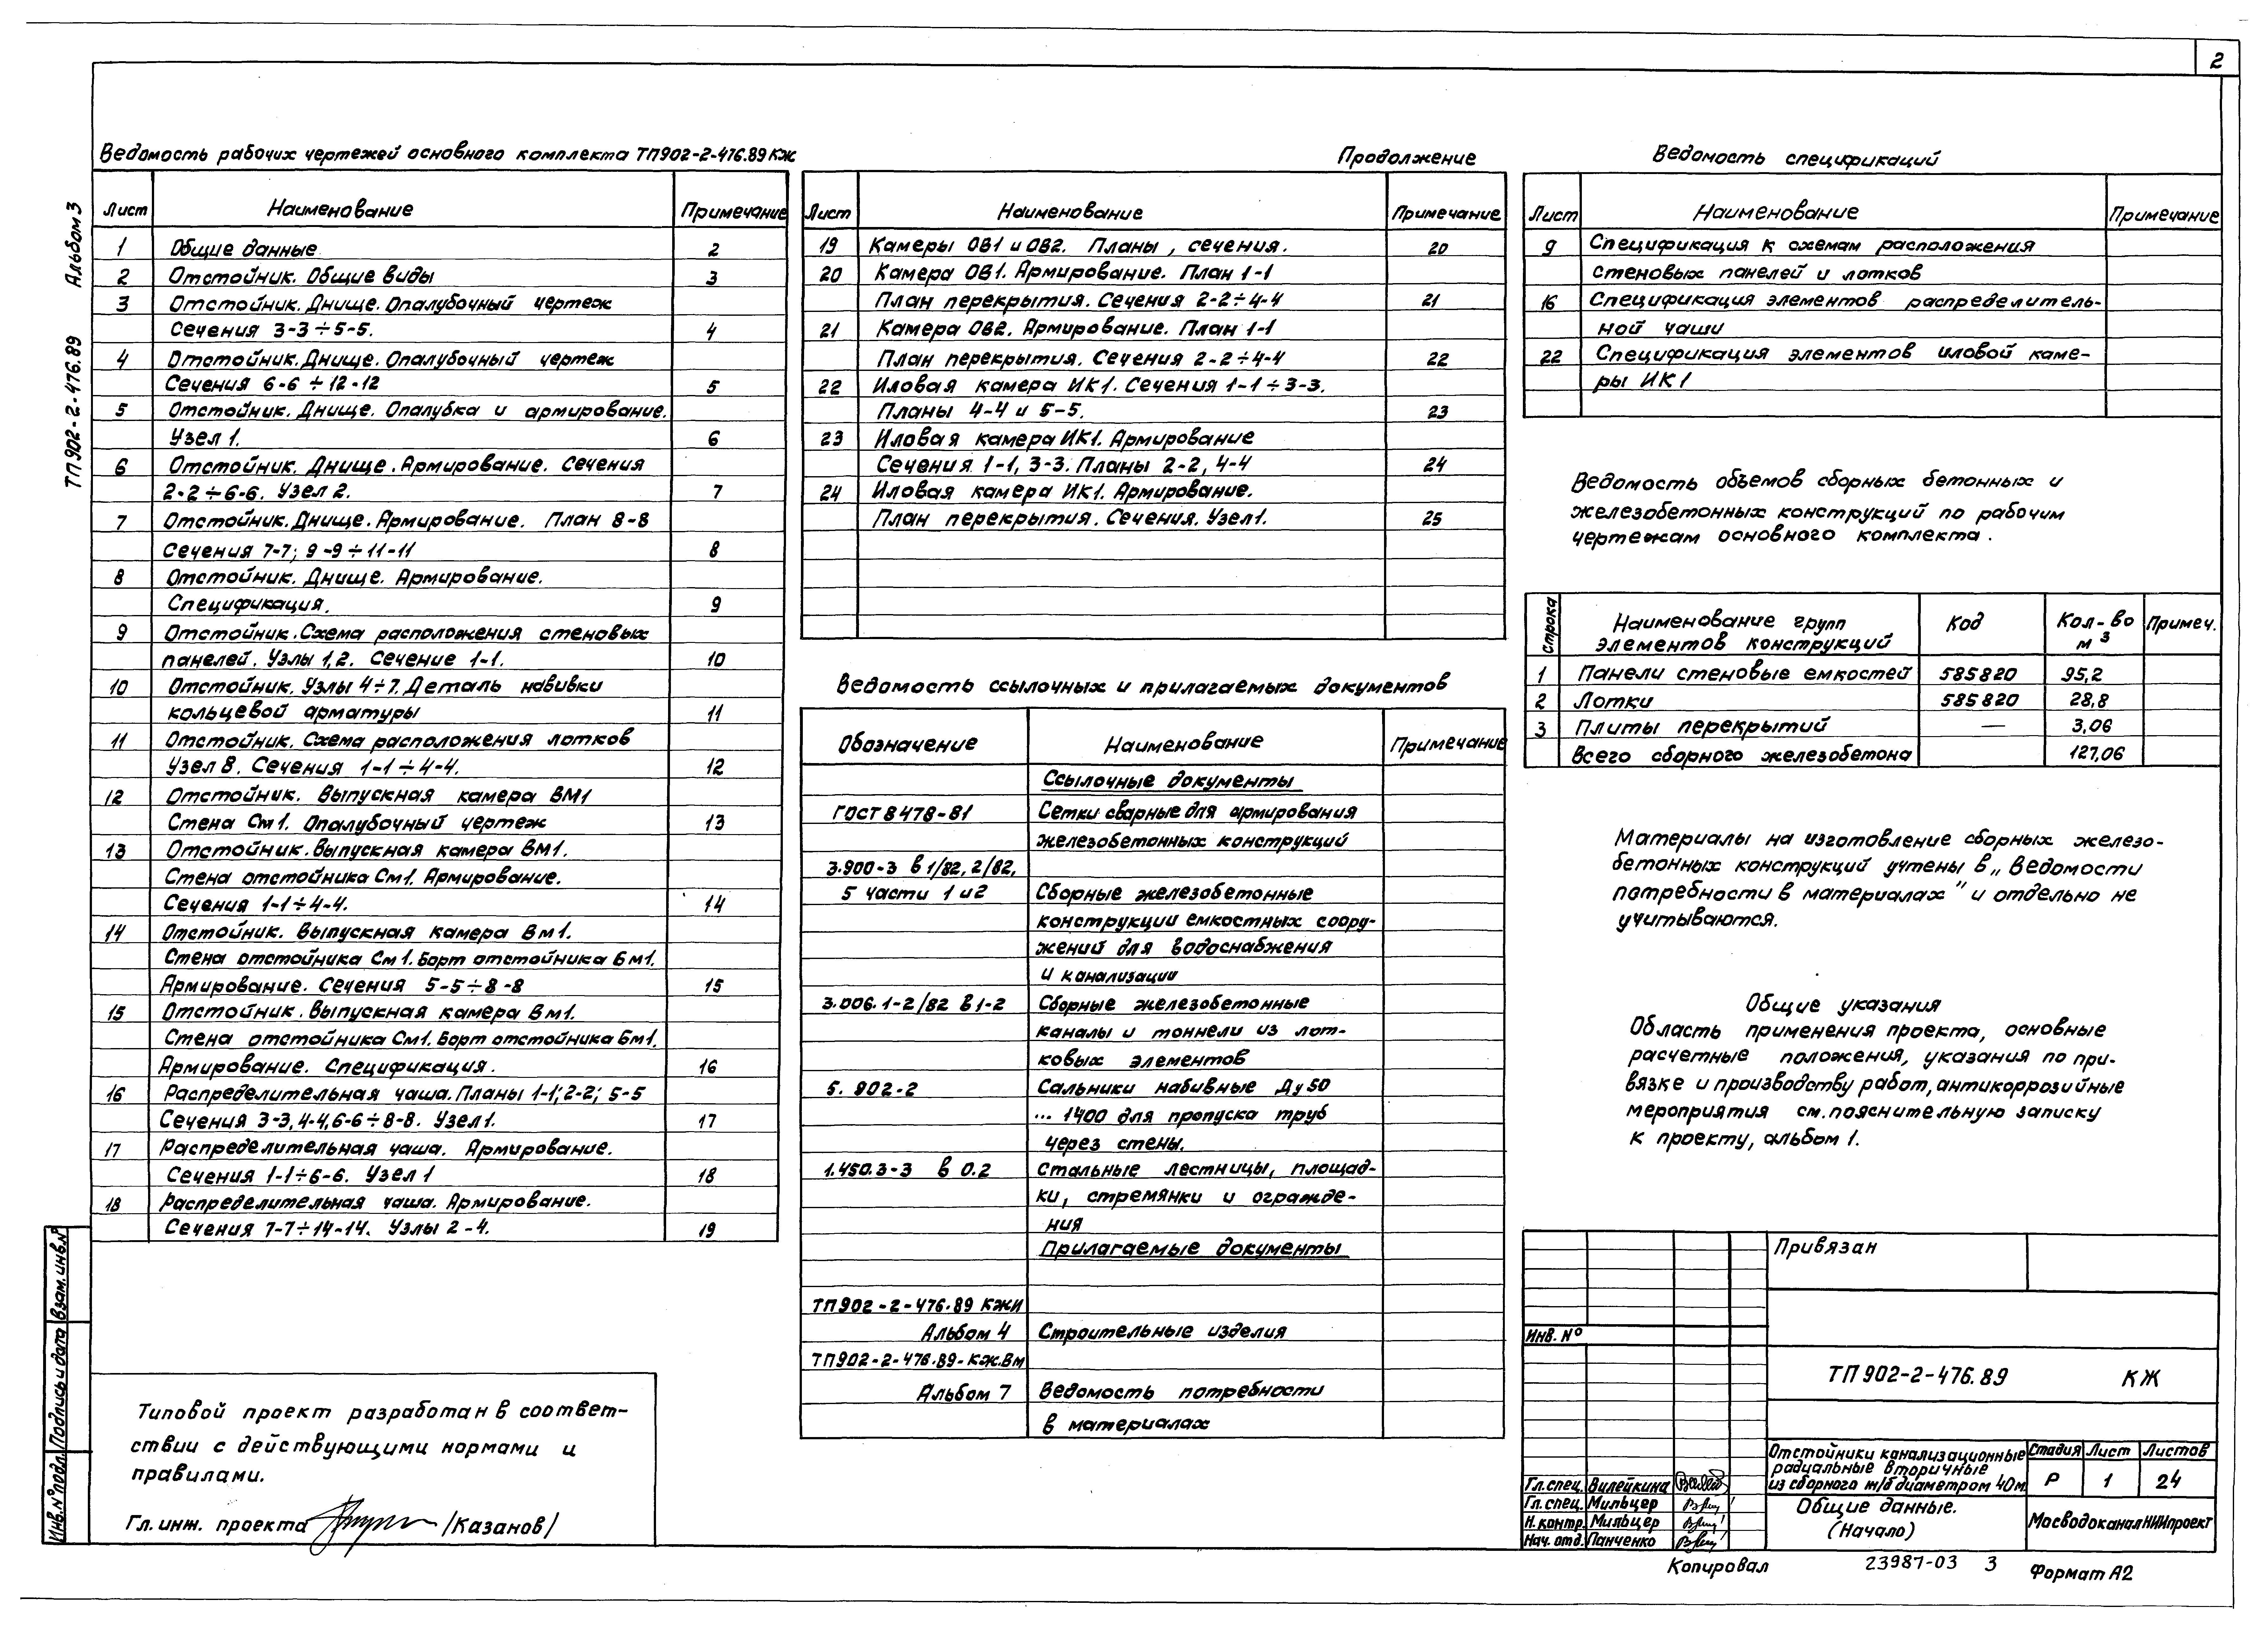 2
Альбом 3
ТП 902-2-476.89
Ведомость рабочих чертежей основного комплекта ТП902-2-476.89 КЖ
Лист Наименование Примечание
1 Общие данные 2
2 Отстойник. Общие виды 3
3 Отстойник. Днище. Опалубочный чертеж
Сечения 3-3÷5-5. 4
4 Отстойник. Днище. Опалубочный чертеж
Сечения 6-6 ÷ 12-12 5
5 Отстойник. Днище. Опалубка и армирование.
Узел 1. 6
6 Отстойник. Днище. Армирование. Сечения
2-2÷6-6. Узел 2. 7
7 Отстойник. Днище. Армирование. План 8-8
Сечения 7-7; 9-9÷11-11 8
8 Отстойник. Днище. Армирование.
Спецификация. 9
9 Отстойник. Схема расположения стеновых
панелей. Узлы 1,2. Сечение 1-1. 10
10 Отстойник. Узлы 4÷7. Деталь навивки
кольцевой арматуры 11
11 Отстойник. Схема расположения лотков
Узел 8. Сечения 1-1÷4-4. 12
12 Отстойник. Выпускная камера ВМ1
Стена См1. Опалубочный чертеж 13
13 Отстойник. Выпускная камера Вм1.
Стена отстойника См1. Армирование.
Сечения 1-1÷4-4. 14
14 Отстойник. Выпускная камера Вм1.
Стена отстойника См1. Борт отстойника Бм1.
Армирование. Сечения 5-5÷8-8 15
15 Отстойник. Выпускная камера Вм1.
Стена отстойника См1. Борт отстойника Бм1.
Армирование. Спецификация. 16
16 Распределительная чаша. Планы 1-1; 2-2; 5-5
Сечения 3-3, 4-4, 6-6÷8-8. Узел 1. 17
17 Распределительная чаша. Армирование.
Сечения 1-1÷6-6. Узел 1 18
18 Распределительная чаша. Армирование.
Сечения 7-7÷14-14. Узлы 2-4. 19
Продолжение
Лист Наименование Примечание
19 Камеры ОВ1 и ОВ2. Планы, сечения. 20
20 Камера ОВ1. Армирование. План 1-1
План перекрытия. Сечения 2-2÷4-4 21
21 Камера ОВ2. Армирование. План 1-1
План перекрытия. Сечения 2-2÷4-4 22
22 Иловая камера ИК1. Сечения 1-1÷3-3.
Планы 4-4 и 5-5. 23
23 Иловая камера ИК1. Армирование
Сечения 1-1, 3-3. Планы 2-2, 4-4 24
24 Иловая камера ИК1. Армирование.
План перекрытия. Сечения. Узел 1. 25
Ведомость ссылочных и прилагаемых документов
Обозначение Наименование Примечание
Ссылочные документы
ГОСТ 8478-81 Сетки сварные для армирования
железобетонных конструкций
3.900-3 в 1/82, 2/82,
5 части 1 и 2 Сборные железобетонные
конструкции емкостных соору-
жений для водоснабжения
и канализации
3.006.1-2/82 в 1-2 Сборные железобетонные
каналы и тоннели из лот-
ковых элементов
5.902-2 Сальники набивные Ду 50
... 1400 для пропуска труб
через стены.
1.450.3-3 в 0.2 Стальные лестницы, площад-
ки, стремянки и огражде-
ния
Прилагаемые документы
ТП902-2-476.89 КЖИ
Альбом 4 Строительные изделия
ТП902-2-476.89-КЖ.ВМ
Альбом 7 Ведомость потребности
в материалах
Ведомость спецификаций
Лист Наименование Примечание
9 Спецификация к схемам расположения
стеновых панелей и лотков
16 Спецификация элементов распределитель-
ной чаши
22 Спецификация элементов иловой каме-
ры ИК1
Ведомость объемов сборных бетонных и
железобетонных конструкций по рабочим
чертежам основного комплекта.
Строка Наименование групп элементов конструкций Код Кол-во м3 Примеч.
1 Панели стеновые емкостей 585820 95,2
2 Лотки 585820 28,8
3 Плиты перекрытий — 3,06
Всего сборного железобетона 127,06
Материалы на изготовление сборных железо-
бетонных конструкций учтены в „Ведомости
потребности в материалах" и отдельно не
учитываются.
Общие указания
Область применения проекта, основные
расчетные положения, указания по при-
вязке и производству работ, антикоррозийные
мероприятия см. пояснительную записку
к проекту, альбом 1.
Типовой проект разработан в соответ-
ствии с действующими нормами и
правилами.
Гл. инж. проекта /Казанов/
Инв. № подл. Подпись и дата Взам. инв. №
Привязан
Инв. №
ТП 902-2-476.89 КЖ
Отстойники канализационные
радиальные вторичные
из сборного ж/б диаметром 40м.
Стадия Лист Листов
Р 1 24
Гл. спец. Вилейкина
Гл. спец. Мильцер
Н. контр. Мильцер
Нач. отд. Панченко
Общие данные.
(Начало)
МосводоканалНИИпроект
Копировал 23987-03 3 Формат А2